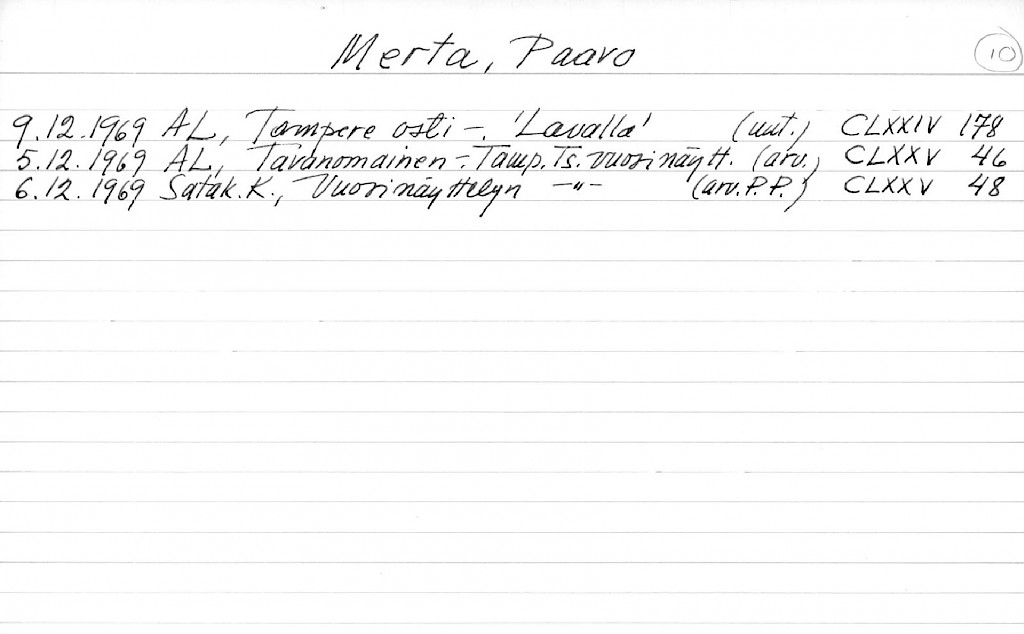 Merta, Paavo 10
9.12.1969 AL, Tampere osti -. 'Lavalla' (uut.) CLXXIV 178
5.12.1969 AL, Tavanomainen -. Tamp. Ts. vuosinäytt. (arv.) CLXXV 46
6.12.1969 Satak.K., Vuosinäyttelyn -"- (arv. P.P.) CLXXV 48